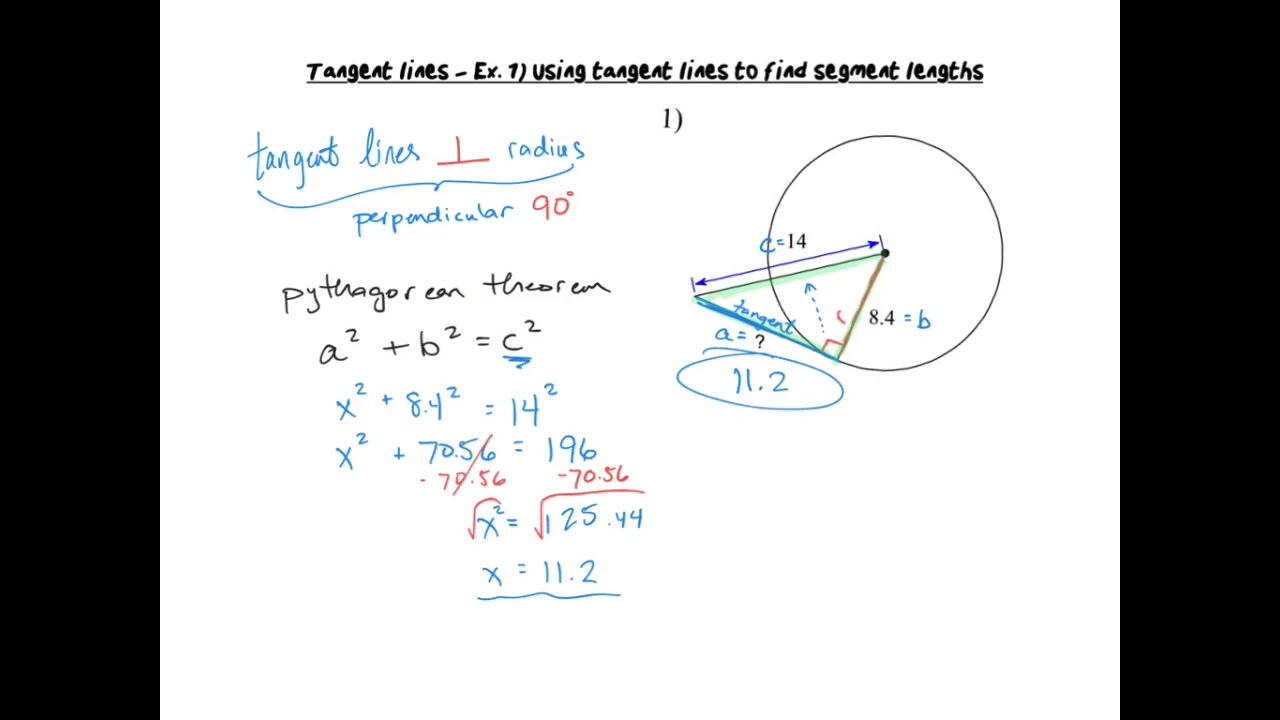 Tangent lines – Ex. 1) Using tangent lines to find segment lengths
tangent lines ⊥ radius
perpendicular 90°
pythagorean theorem
a² + b² = c²
x² + 8.4² = 14²
x² + 70.56 = 196
-70.56 -70.56
√x² = √125.44
x = 11.2
1)
c=14
r
8.4 = b
tangent
a = ?
11.2